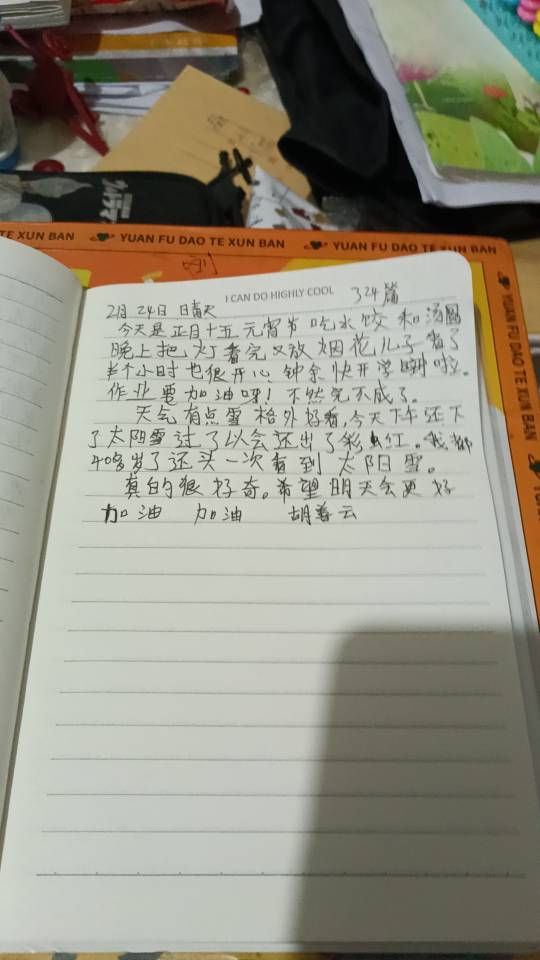 TE XUN BAN YUAN FU DAO TE XUN BAN YUAN FU DAO TE XUN BAN
YUAN FU DAO TE XUN BAN
I CAN DO HIGHLY COOL
324篇
2月24日 日晴天
今天是正月十五元宵节吃水饺和汤圆
晚上把灯看完又放烟花儿子看了
半个小时也很开心 钟余快开学啊啦。
作业要加油呀!不然完不成了。
天气有点雪格外好看,今天下午还下
了太阳雪过了以会还出了彩虹。我都
40多岁了还头一次看到太阳雪。
真的狠好奇。希望明天会更好
加油 加油 胡善云